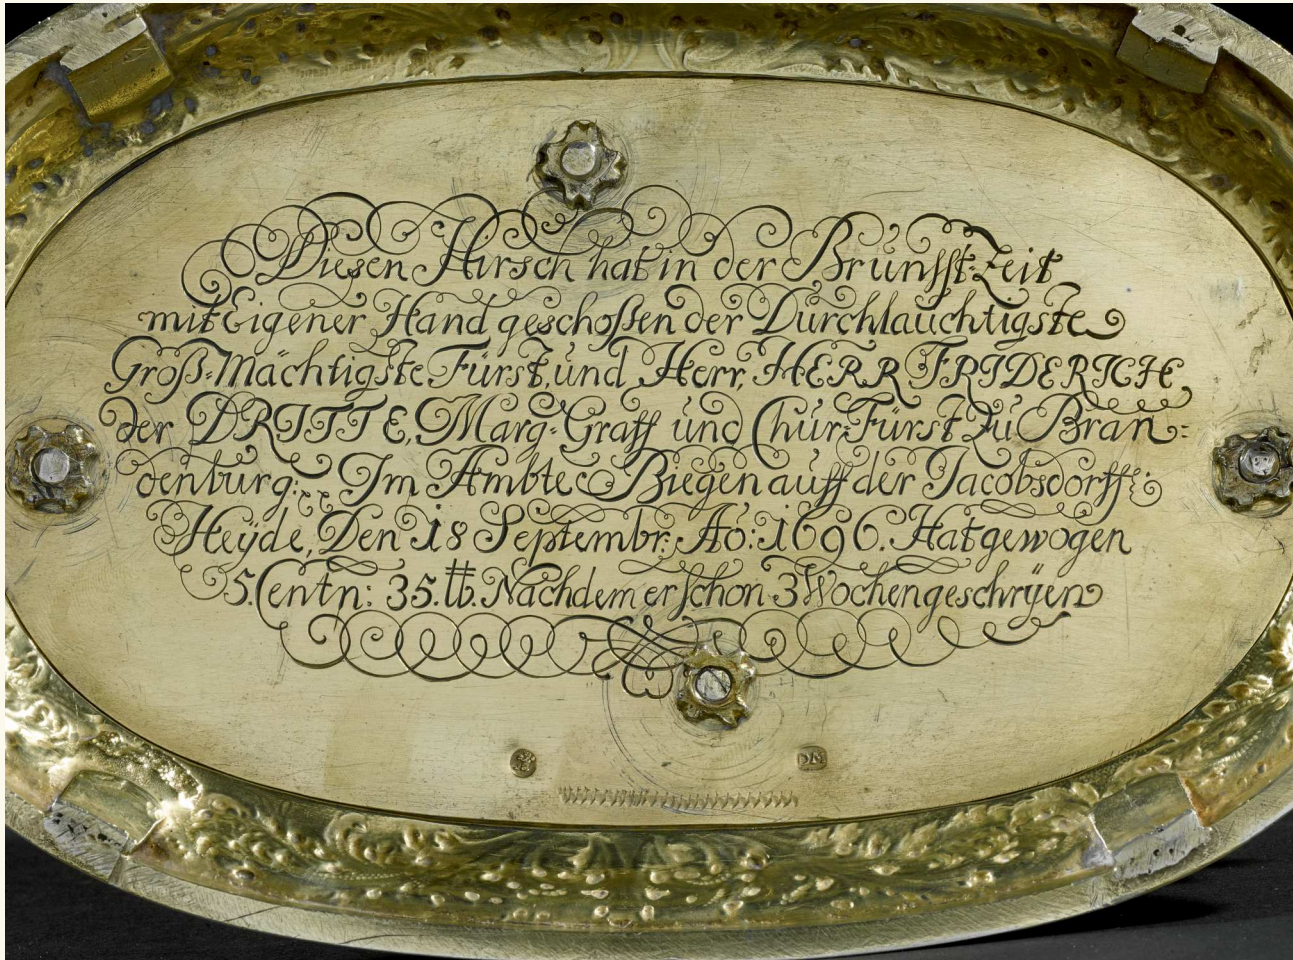 Diesen Hirsch hat in der Brunfft-Zeit
mit Eigener Hand geschoßen der Durchlauchtigste
Groß-Mächtigste Fürst, und Herr, HERR FRIDERICH
der DRITTE, Marg-Graff und Chur-Fürst Zu Bran-
denburg. Im Ambte Biegen auff der Jacobsdorff:
Heÿde, Den 18 Septembr: Ao: 1696. Hat gewogen
5. Centn: 35. ℔. Nachdem er schon 3 Wochen geschrÿen
DM